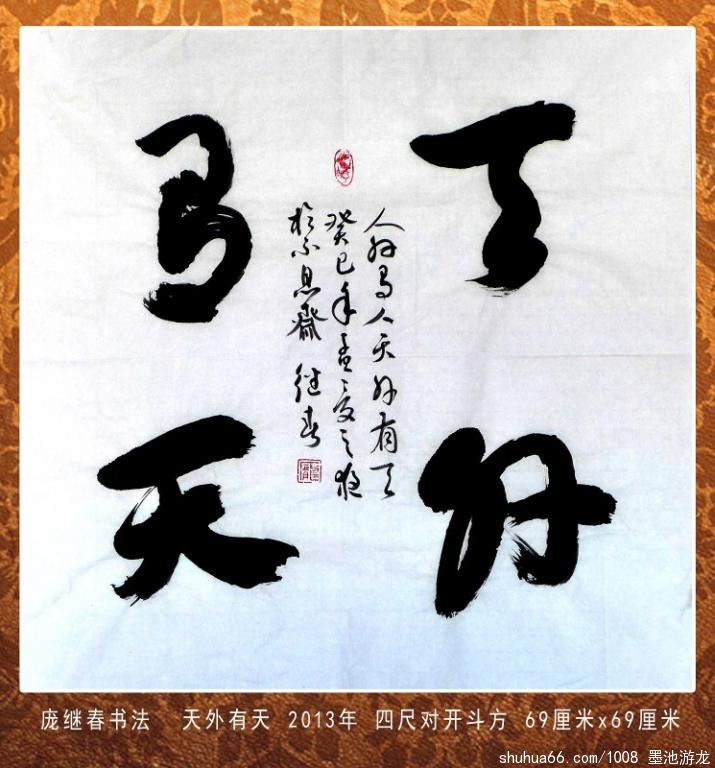 天外
有天
人外有人天外有天
癸巳年孟夏之夜
於不息齋 继春
庞继春书法 天外有天 2013年 四尺对开斗方 69厘米x69厘米
shuhua66.com/1008 墨池游龙